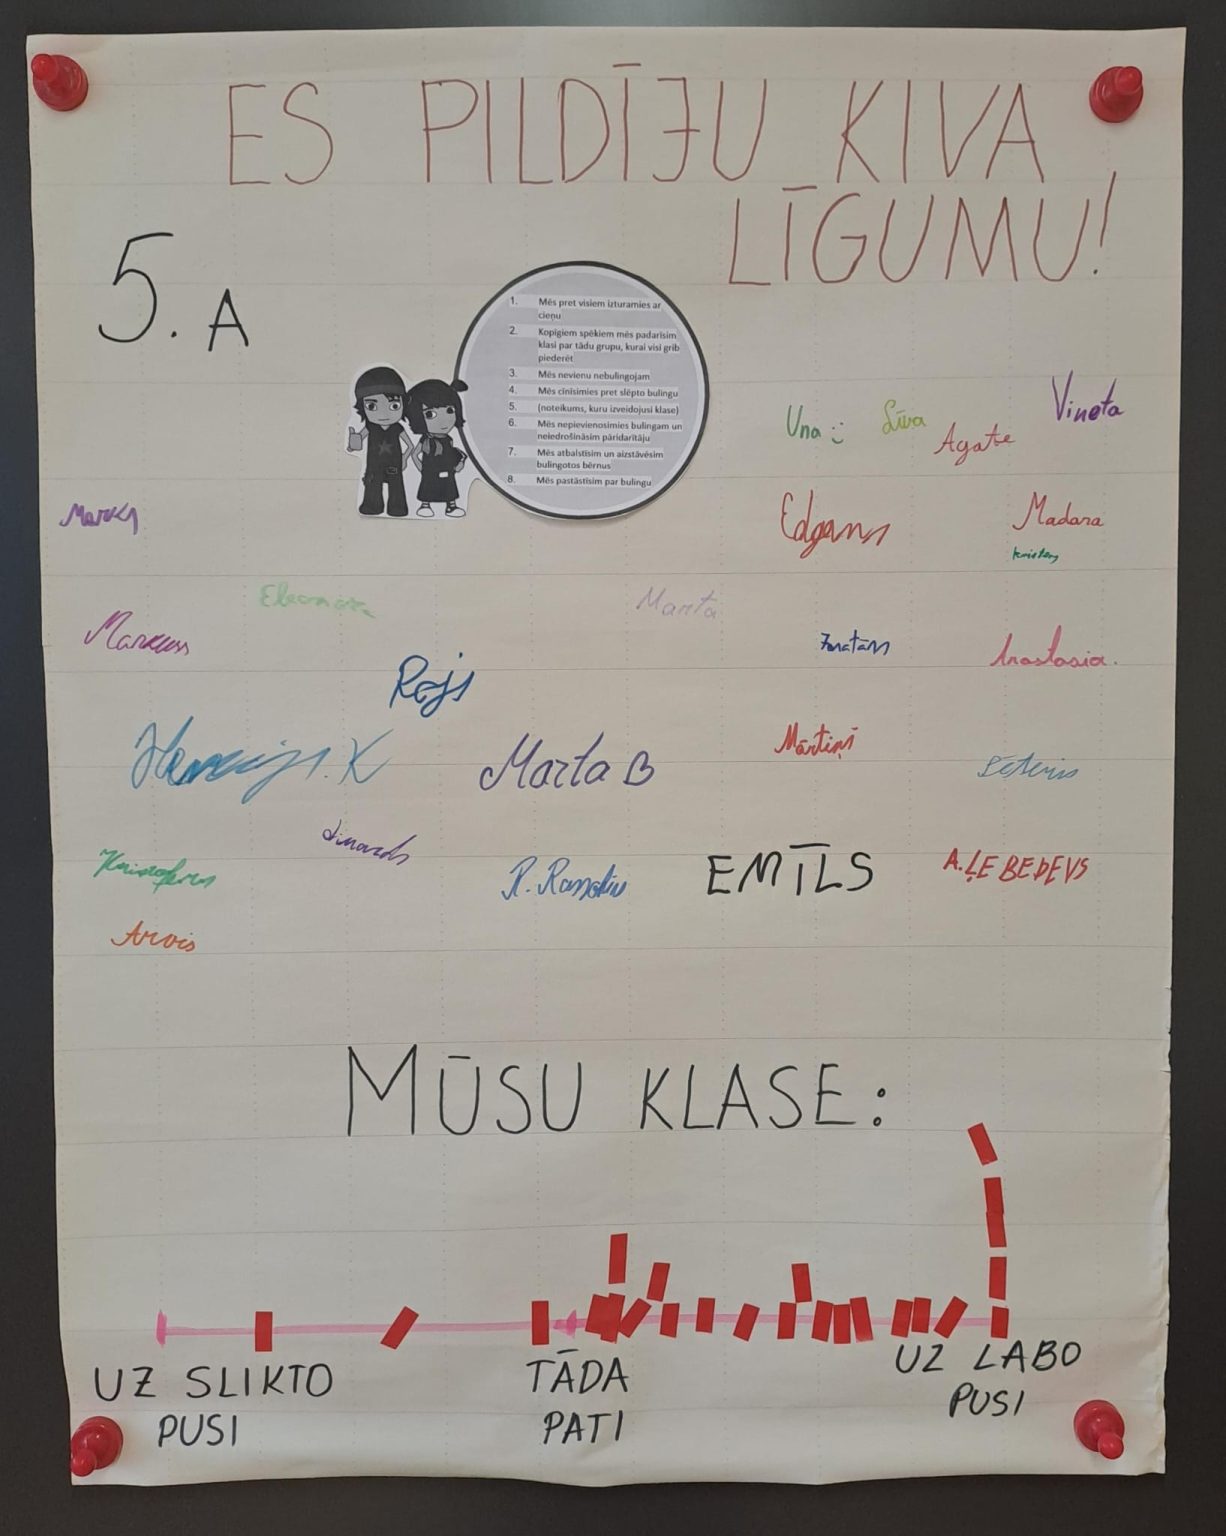 ES PILDĪJU KIVA
LĪGUMU!
5. A
1. Mēs pret visiem izturamies ar
cieņu
2. Kopīgiem spēkiem mēs padarīsim
klasi par tādu grupu, kurai visi grib
piederēt
3. Mēs nevienu nebulingojam
4. Mēs cīnīsimies pret slēpto bulingu
5. (noteikums, kuru izveidojusi klase)
6. Mēs nepievienosimies bulingam un
neiedrošināsim pāridarītāju
7. Mēs atbalstīsim un aizstāvēsim
bulingotos bērnus
8. Mēs pastāstīsim par bulingu
Una :)
Līva
Agate
Vineta
Marks
Edgars
Madara
Eleonora
Marta
Markuss
Anastasia.
Rojs
Mārtiņš
Marta B
Linards
Kristofers
EMĪLS
A.ĻEBEDEVS
Arvis
MŪSU KLASE:
UZ SLIKTO
PUSI
TĀDA
PATI
UZ LABO
PUSI